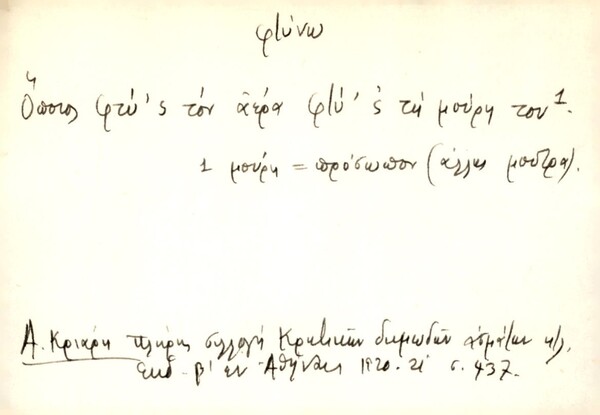 φτύνω
Όποιος φτύ 'ς τόν ἀέρα φτύ 'ς τή μούρη του¹.
1 μούρη = πρόσωπον (ἄλλως μούτρα).
Α. Κριάρη πλήρης συλλογή Κρητικῶν δημωδῶν ἀσμάτων κτλ.
Ἐκδ. β' ἐν Ἀθήναις 1920-21 σ. 437.